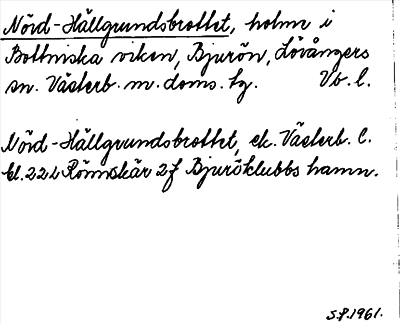 Nörd-Hällgrundsbrottet, holme i
Bottniska viken, Bjurön, Lövångers
sn. Västerb. m. doms. tg. Vb. l.
Nörd-Hällgrundsbrottet, ek. Västerb. l.
bl. 22 L Rönnskär 2f Bjuröklubbs hamn.
S.P. 1961.